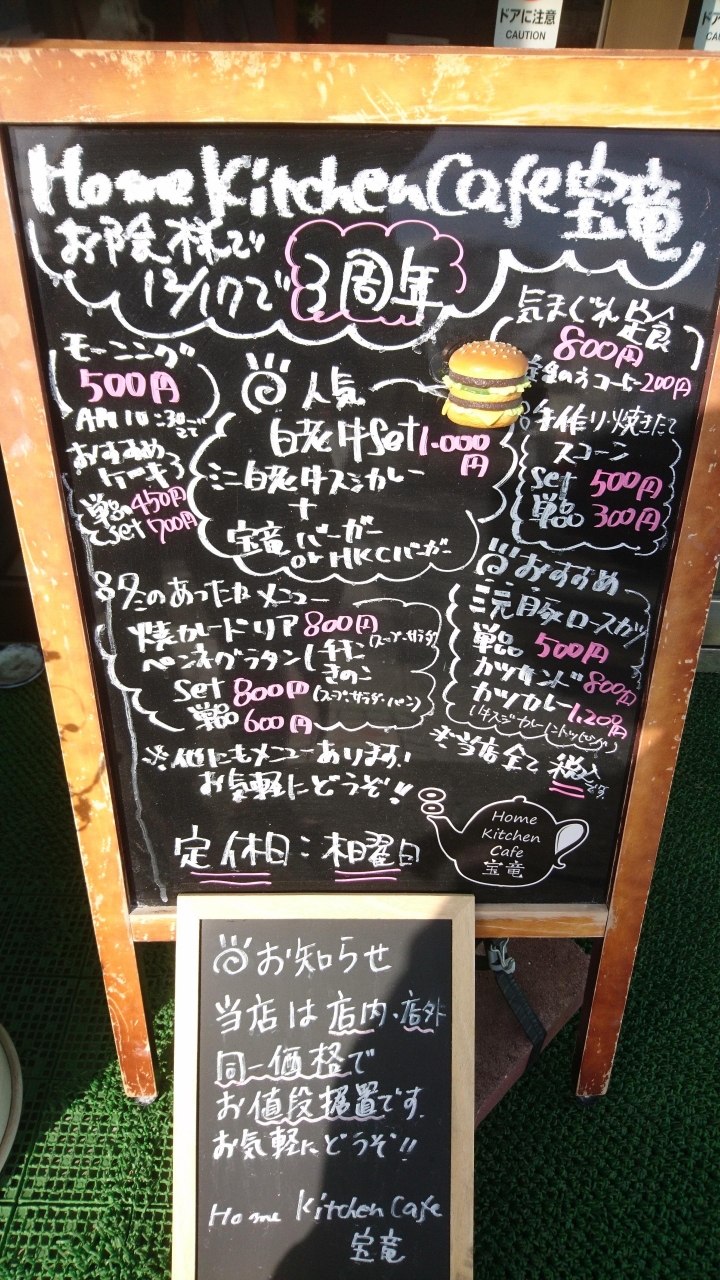 ドアに注意
CAUTION
Home Kitchen Cafe 宝竜
お陰様で
12/17で3周年
モーニング
500円
AM10:30まで
おすすめ
ケーキ
単品450円
set 700円
人気
白老牛set 1.000円
ミニ白老牛スジカレー
+
宝竜バーガー
or HKCバーガー
気まぐれ定食
800円
コーヒー200円
手作り・焼きたて
スコーン
set 500円
単品 300円
おすすめ
三元豚ロースカツ
単品 500円
カツサンド800円
カツカレー1,200円
(牛スジカレーにトッピング)
※当店全て税込です。
冬のあったかメニュー
焼カレードリア800円(スープ・サラダ)
ペンネグラタン(チキン きのこ
set 800円(スープ・サラダ・パン)
単品 600円
※他にもメニューあります!
お気軽にどうぞ!!
定休日:木曜日
Home
Kitchen
Cafe
宝竜
お知らせ
当店は店内・店外
同一価格で
お値段据置です。
お気軽にどうぞ!!
Home Kitchen Cafe
宝竜